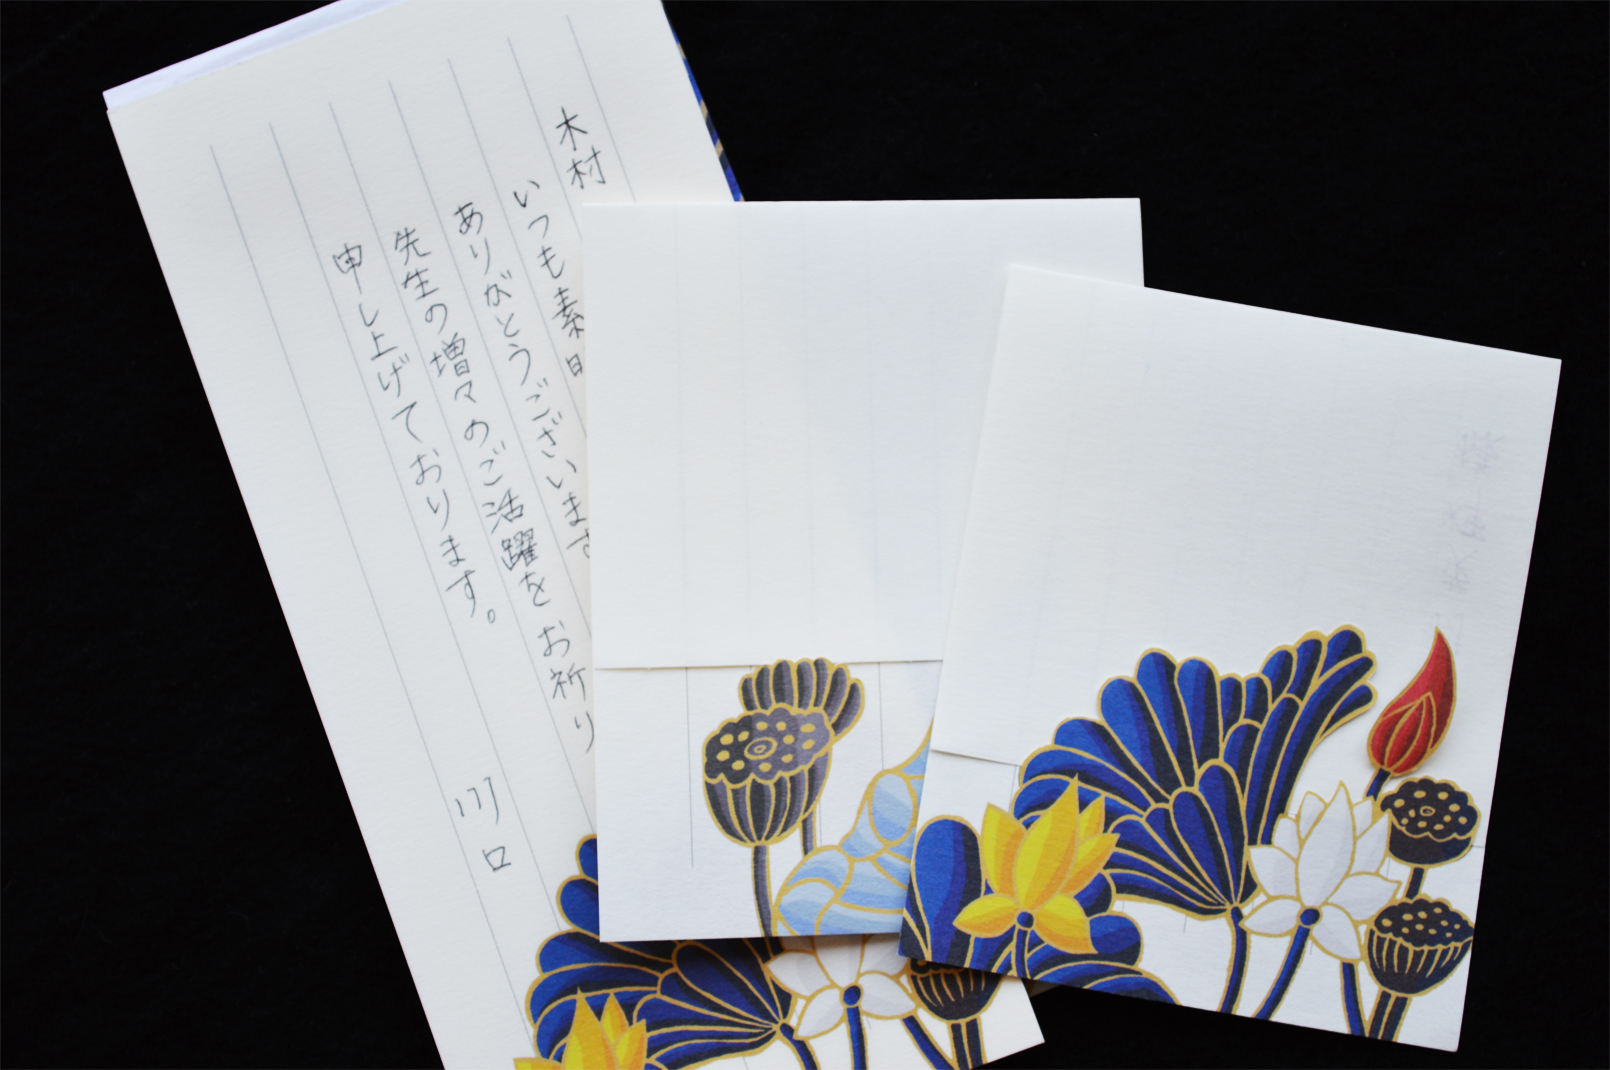 木村
いつも素
ありがとうございます
先生の増々のご活躍をお祈り
申し上げております。
川口